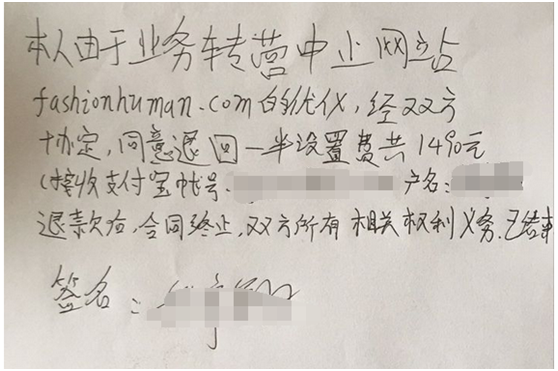 本人由于业务转营中止网站
fashionhuman.com的优化,经双方
协定,同意退回一半设置费共1490元
(接收支付宝帐号: 户名:
退款后,合同终止,双方所有相关权利义务已结束
签名: